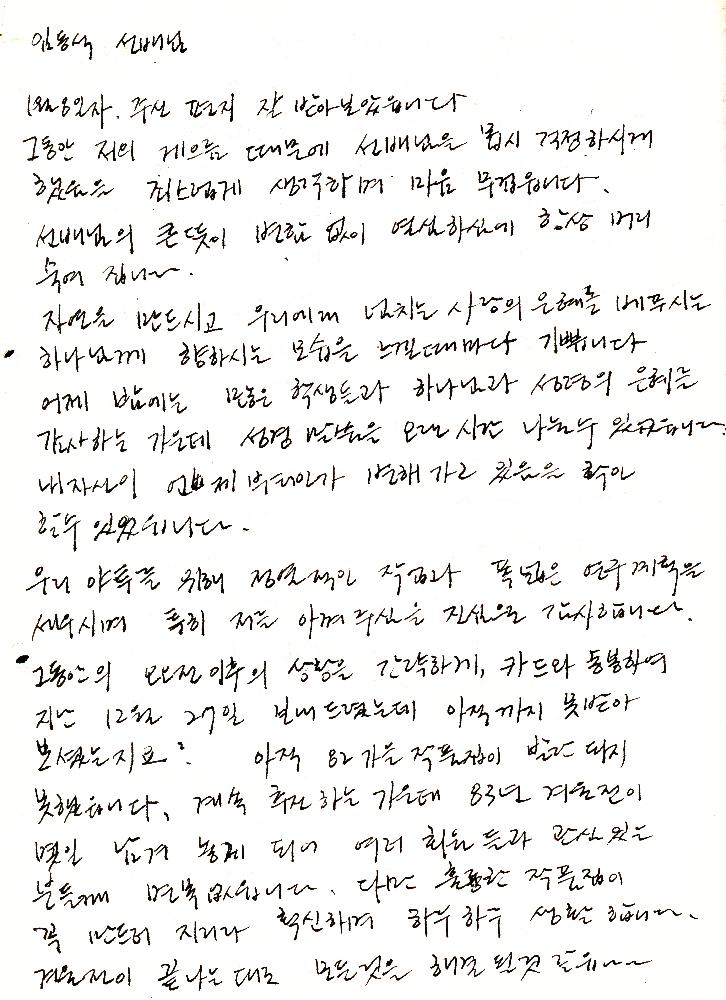 임동식 선배님
1월 8일자. 주신 편지 잘 받아보았읍니다
그동안 저의 게으름 때문에 선배님을 몹시 걱정하시게
했음을 죄스럽게 생각하며 마음 무겁읍니다.
선배님의 큰 뜻이 변함 없이 열심하심에 항상 머리
숙여 집니다.
자연을 만드시고 우리에게 넘치는 사랑의 은혜를 베푸시는
하나님께 향하시는 모습을 느낄때마다 기쁩니다
어제 밤에는 많은 학생들과 하나님과 성경의 은혜를
감사하는 가운데 성경 말씀을 오랜 시간 나눌수 있었읍니다.
내자신이 언제 부터인가 변해 가고 있음을 확인
할수 있었읍니다.
우리 야투를 위해 정열적인 작업과 폭넓은 연구계획을
세우시며 특히 저를 아껴주심을 진심으로 감사합니다.
그동안의 전 이후의 상황을 간략하게, 카드와 동봉하여
지난 12월 27일 보내드렸는데 아직까지 못받아
보셨는지요? 아직 82 가을 작품집이 발간 되지
못했읍니다. 계속 추진하는 가운데 83년 겨울전이
몇일 남겨 놓게 되어 여러 회원들과 관심있는
분들께 면목없읍니다. 다만 훌륭한 작품집이
꼭 만드러 지리라 확신하며 하루하루 생활합니다.
겨울전이 끝나는대로 모든것은 해결 될것 같읍니다